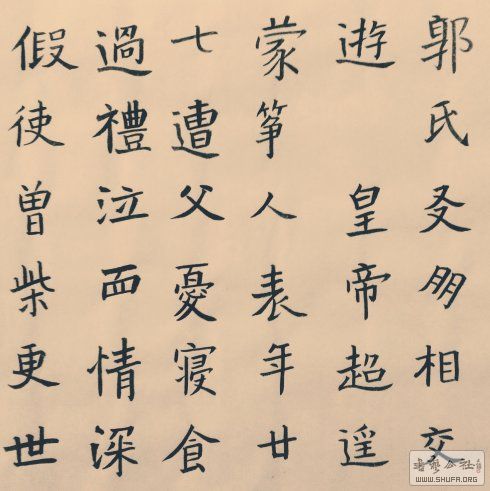 郭氏友朋相交
遊皇帝超遥
蒙筝人表年廿
七遭父憂寝食
過禮泣而情深
假使曾柴更世
WWW.SHUFA.ORG